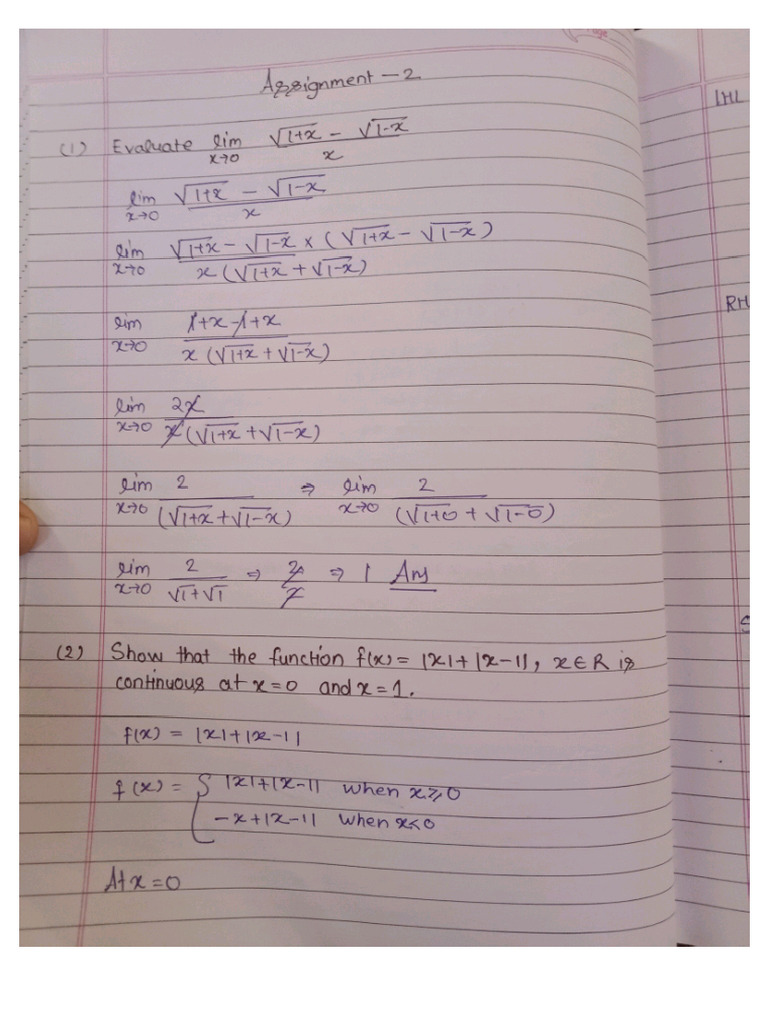 Assignment - 2
LHL
(1) Evaluate lim x→0 (√1+x - √1-x) / x
lim x→0 (√1+x - √1-x) / x
lim x→0 √1+x - √1-x × (√1+x - √1-x) / x(√1+x + √1-x)
RH
lim x→0 1+x-1+x / x(√1+x + √1-x)
lim x→0 2x / x(√1+x + √1-x)
lim x→0 2 / (√1+x + √1-x) ⇒ lim x→0 2 / (√1+0 + √1-0)
lim x→0 2 / √1+√1 ⇒ 2/2 ⇒ 1 Ans
(2) Show that the function f(x) = |x|+|x-1|, x∈R is
continuous at x=0 and x=1.
f(x) = |x|+|x-1|
f(x) = { |x|+|x-1| when x≥0
-x+|x-1| when x<0
At x=0